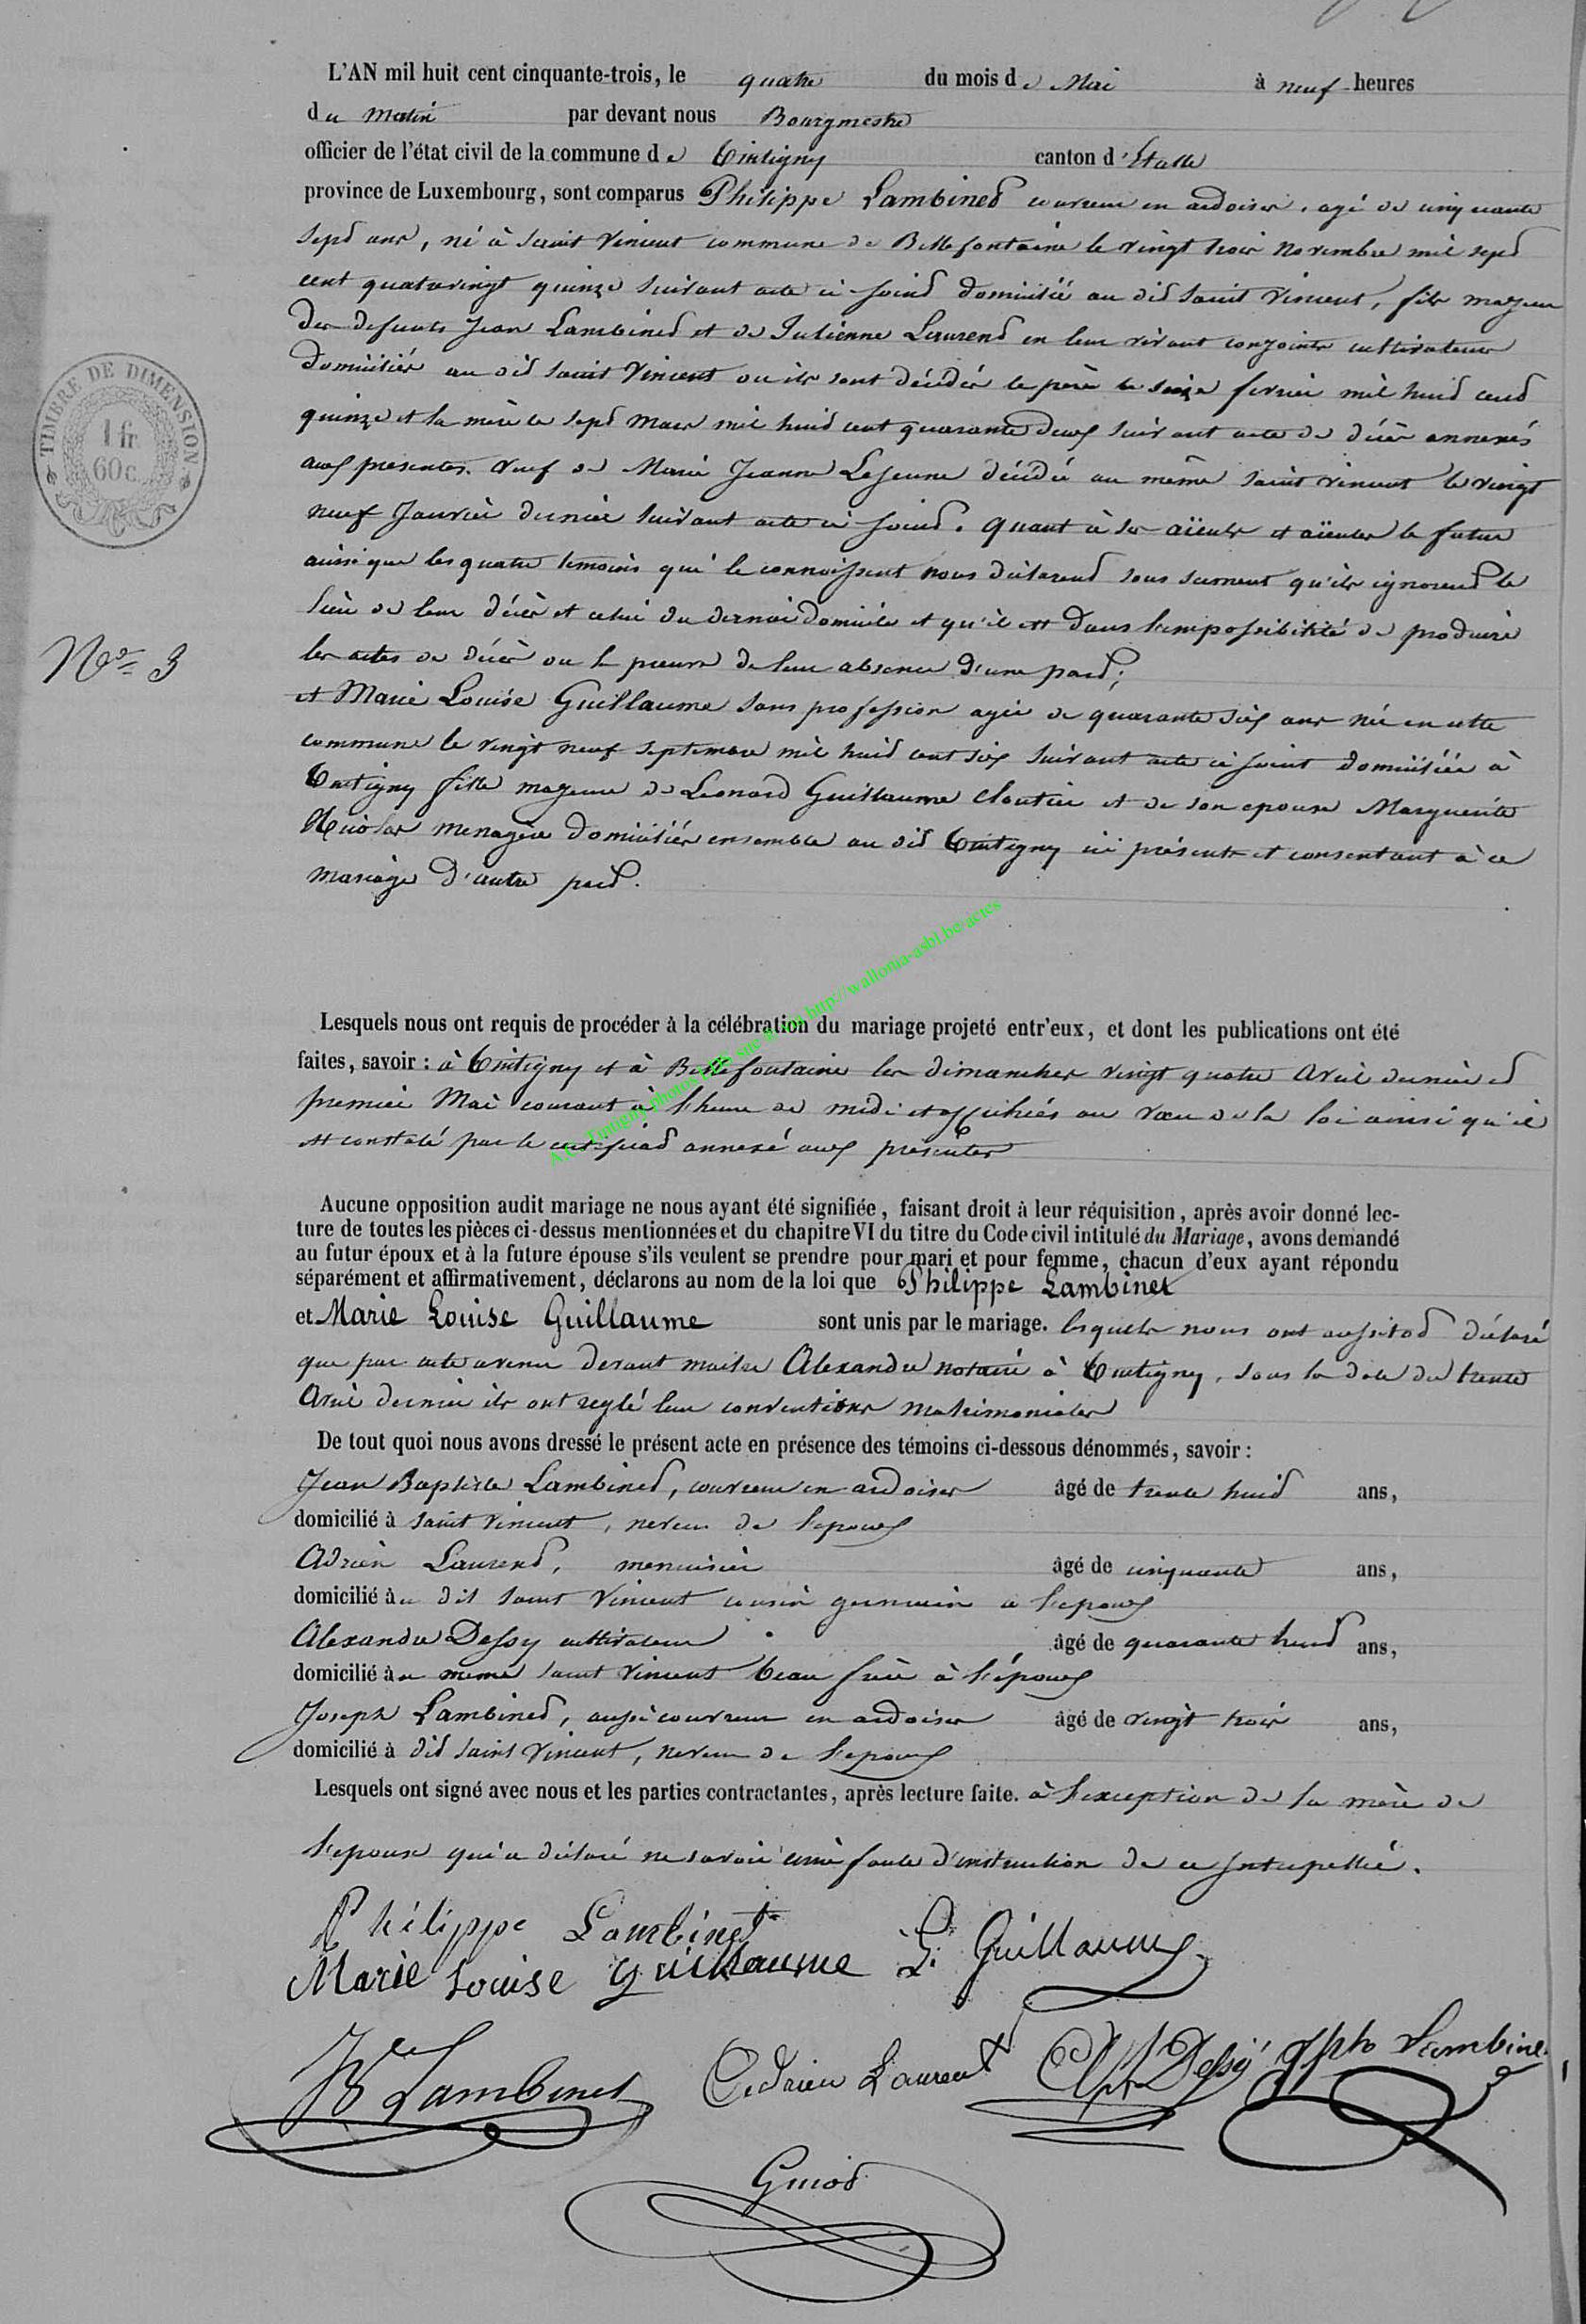 L'AN mil huit cent cinquante-trois, le quatre du mois de Mai à neuf heures
du matin par devant nous Bourgmestre
officier de l'état civil de la commune de Tintigny canton d'Etalle
province de Luxembourg, sont comparus Philippe Lambinet couvreur en ardoises, agé de cinquante
sept ans, né à Saint Vincent commune de Bellefontaine le vingt trois novembre mil sept
cent quatrevingt quinze suivant acte ci joint domicilié au dit Saint Vincent, fils majeur
des defunts Jean Lambinet et de Julienne Laurent en leur vivant conjoints cultivateurs
domiciliés au dit Saint Vincent ou ils sont décédés le père le seize fevrier mil huit cent
quinze et la mère le sept mars mil huit cent quarante deux suivant acte de décès annexés
aux presentes. veuf de Marie Jeanne Lejeune décédée au même Saint Vincent le vingt
neuf Janvier dernier suivant acte ci joint. quant à ses aïeuls et aïeules le futur
ainsi que les quatre temoins qui le connoissent nous déclarent sous serment qu'ils ignorent le
lieu de leur décès et celui du dernier domicile et qu'il est dans l'impossibilité de produire
les actes de décès ou la preuve de leur absence d'une part;
et Marie Louise Guillaume sans profession agée de quarante six ans née en cette
commune le vingt neuf septembre mil huit cent six suivant acte ci joint domiciliée à
Tintigny fille majeure de Leonard Guillaume cloutier et de son epouse Marguerite
menagère domiciliés ensemble au dit Tintigny ici présents et consentant à ce
mariage d'autre part.
N° 3
TIMBRE DE DIMENSION
1 fr.
60 c.
Lesquels nous ont requis de procéder à la célébration du mariage projeté entr'eux, et dont les publications ont été
faites, savoir : à Tintigny et à Bellefontaine les dimanches vingt quatre avril dernier et
premier Mai courant à l'heure de midi et affichés au vœu de la loi ainsi qu'il
est constaté par le certificat annexé aux présentes
Aucune opposition audit mariage ne nous ayant été signifiée, faisant droit à leur réquisition, après avoir donné lec-
ture de toutes les pièces ci-dessus mentionnées et du chapitre VI du titre du Code civil intitulé du Mariage, avons demandé
au futur époux et à la future épouse s'ils veulent se prendre pour mari et pour femme, chacun d'eux ayant répondu
séparément et affirmativement, déclarons au nom de la loi que Philippe Lambinet
et Marie Louise Guillaume sont unis par le mariage. lesquels nous ont aussitot déclaré
que par acte avenu devant maitre Alexandre notaire à Tintigny, sous la date du trente
Avril dernier ils ont reglé leur conventions matrimoniales
De tout quoi nous avons dressé le présent acte en présence des témoins ci-dessous dénommés, savoir :
Jean Baptiste Lambinet, couvreur en ardoises âgé de trente huit ans,
domicilié à Saint Vincent, neveu de l'epoux
Adrien Laurent, menuisier âgé de cinquante ans,
domicilié au dit Saint Vincent cousin germain a l'epoux
Alexandre Dessy cultivateur âgé de quarante huit ans,
domicilié au meme Saint Vincent beau frère à l'époux
Joseph Lambinet, aussi couvreur en ardoises âgé de vingt trois ans,
domicilié à dit Saint Vincent, neveu de l'epoux
Lesquels ont signé avec nous et les parties contractantes, après lecture faite. à l'exception de la mère de
l'epouse qui a déclaré ne savoir écrire faute d'instruction de ce interpellée.
Philippe Lambinet
Marie Louise Guillaume L. Guillaume
JB Lambinet Adrien Laurent Alx Dessy Jph Lambinet
Guiot